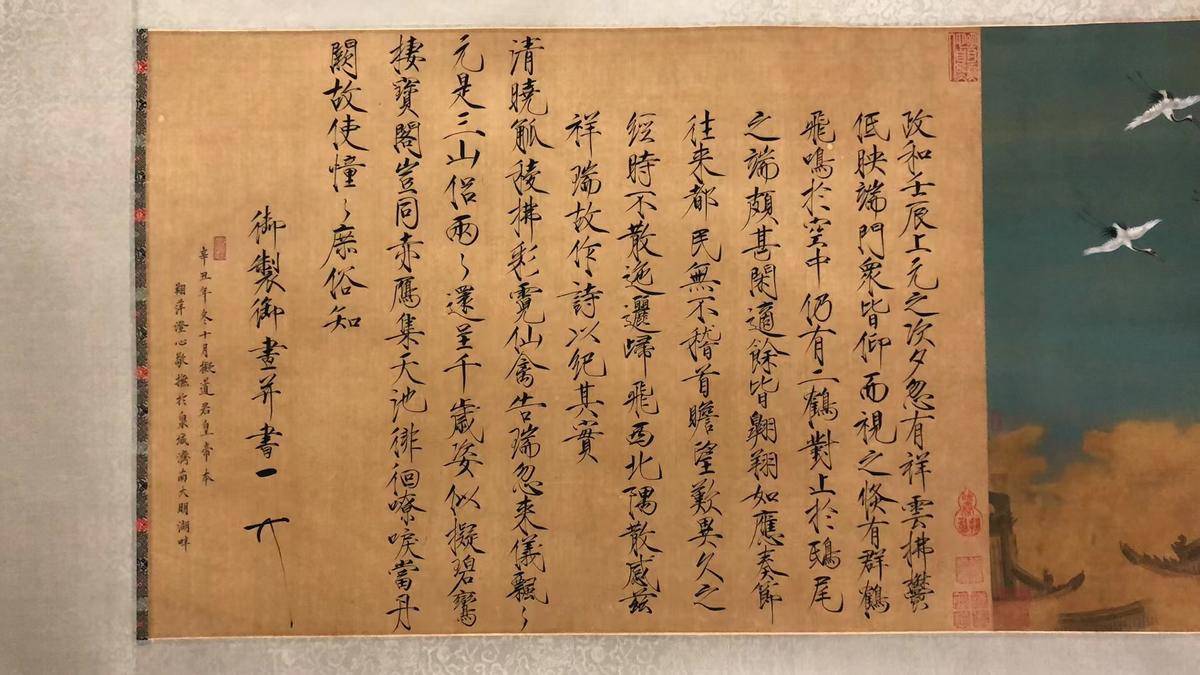 政和壬辰上元之次夕忽有祥雲拂鬱
低映端門眾皆仰而視之倏有群鶴
飛鳴於空中仍有二鶴對止於鴟尾
之端頗甚閑適餘皆翱翔如應奏節
往來都民無不稽首瞻望歎異久之
經時不散迤邐歸飛西北隅散感茲
祥瑞故作詩以紀其實
清曉觚稜拂彩霓仙禽告瑞忽來儀飄〻
元是三山侶兩〻還呈千歲姿似擬碧鸞
棲寶閣豈同赤鴈集天池徘徊嘹唳當丹
闕故使憧〻庶俗知
御製御畫并書
辛丑年冬十月擬道君皇帝本
翔萍澄心敬撫於泉城濟南大明湖畔